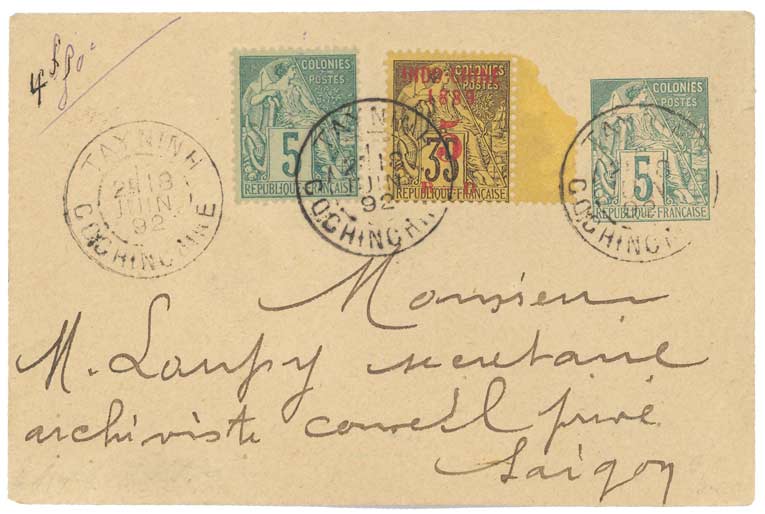 COLONIES
POSTES
5
REPUBLIQUE FRANÇAISE
INDO-CHINE
1889
5
35
R D
REPUBLIQUE FRANÇAISE
COLONIES
POSTES
5
REPUBLIQUE FRANÇAISE
TAY NINH
2E 18
JUIN
92
COCHINCHINE
TAY NINH
18
JUIN
92
COCHINCHINE
TAY
COCHINCH
Monsieur
M. Loupy secretaire
archiviste conseil privé
Saigon